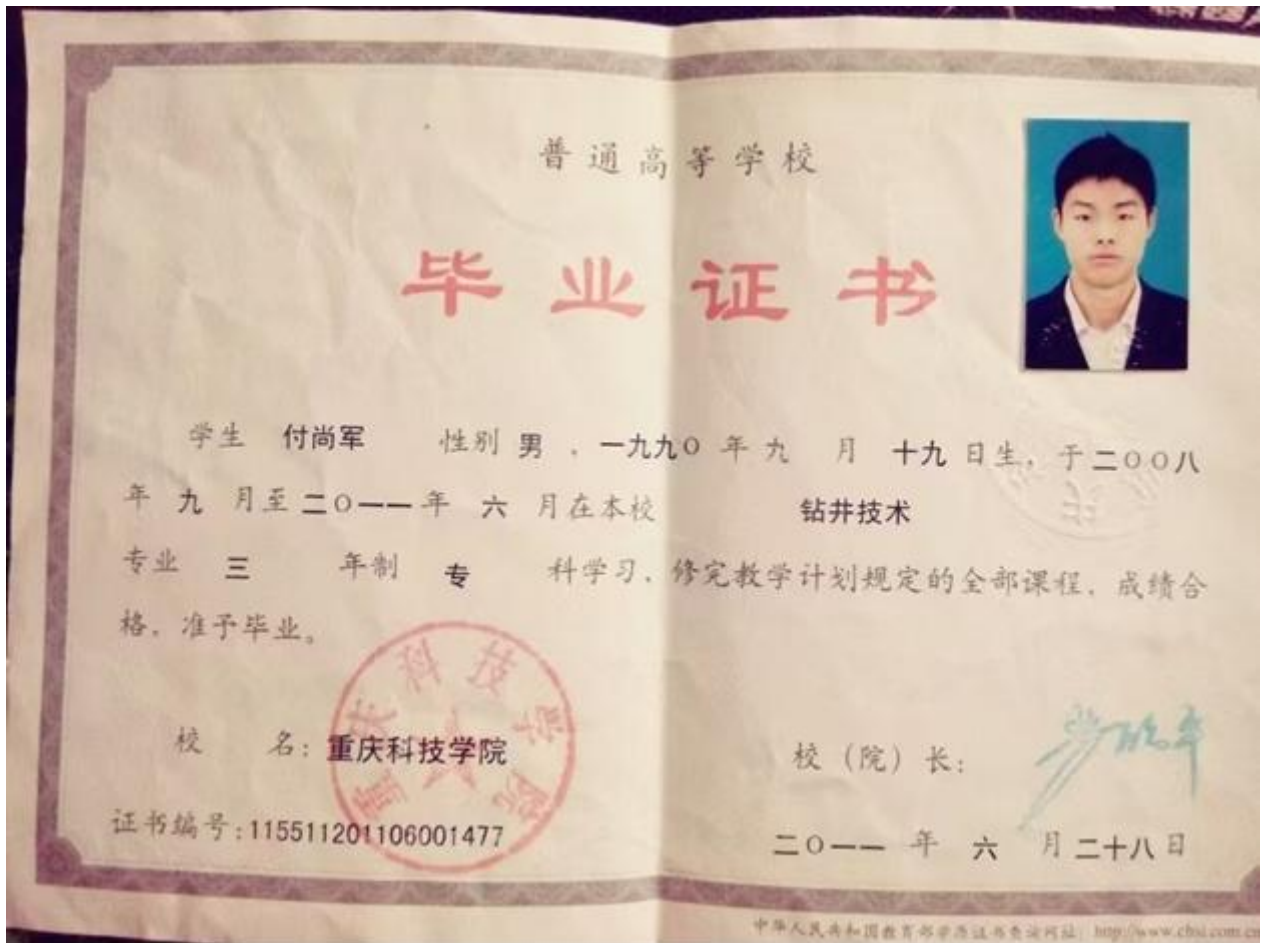 普通高等学校
毕业证书
学生 付尚军 性别 男 、一九九〇 年 九 月 十九 日生, 于 二〇〇八
年 九 月至 二〇一一 年 六 月在本校 钻井技术
专业 三 年制 专 科学习、修完教学计划规定的全部课程、成绩合
格、准予毕业。
重庆科技学院
校 名: 重庆科技学院
校(院)长:
证书编号:115511201106001477
二〇一一 年 六 月 二十八 日
中华人民共和国教育部学历证书查询网址: http://www.chsi.com.cn